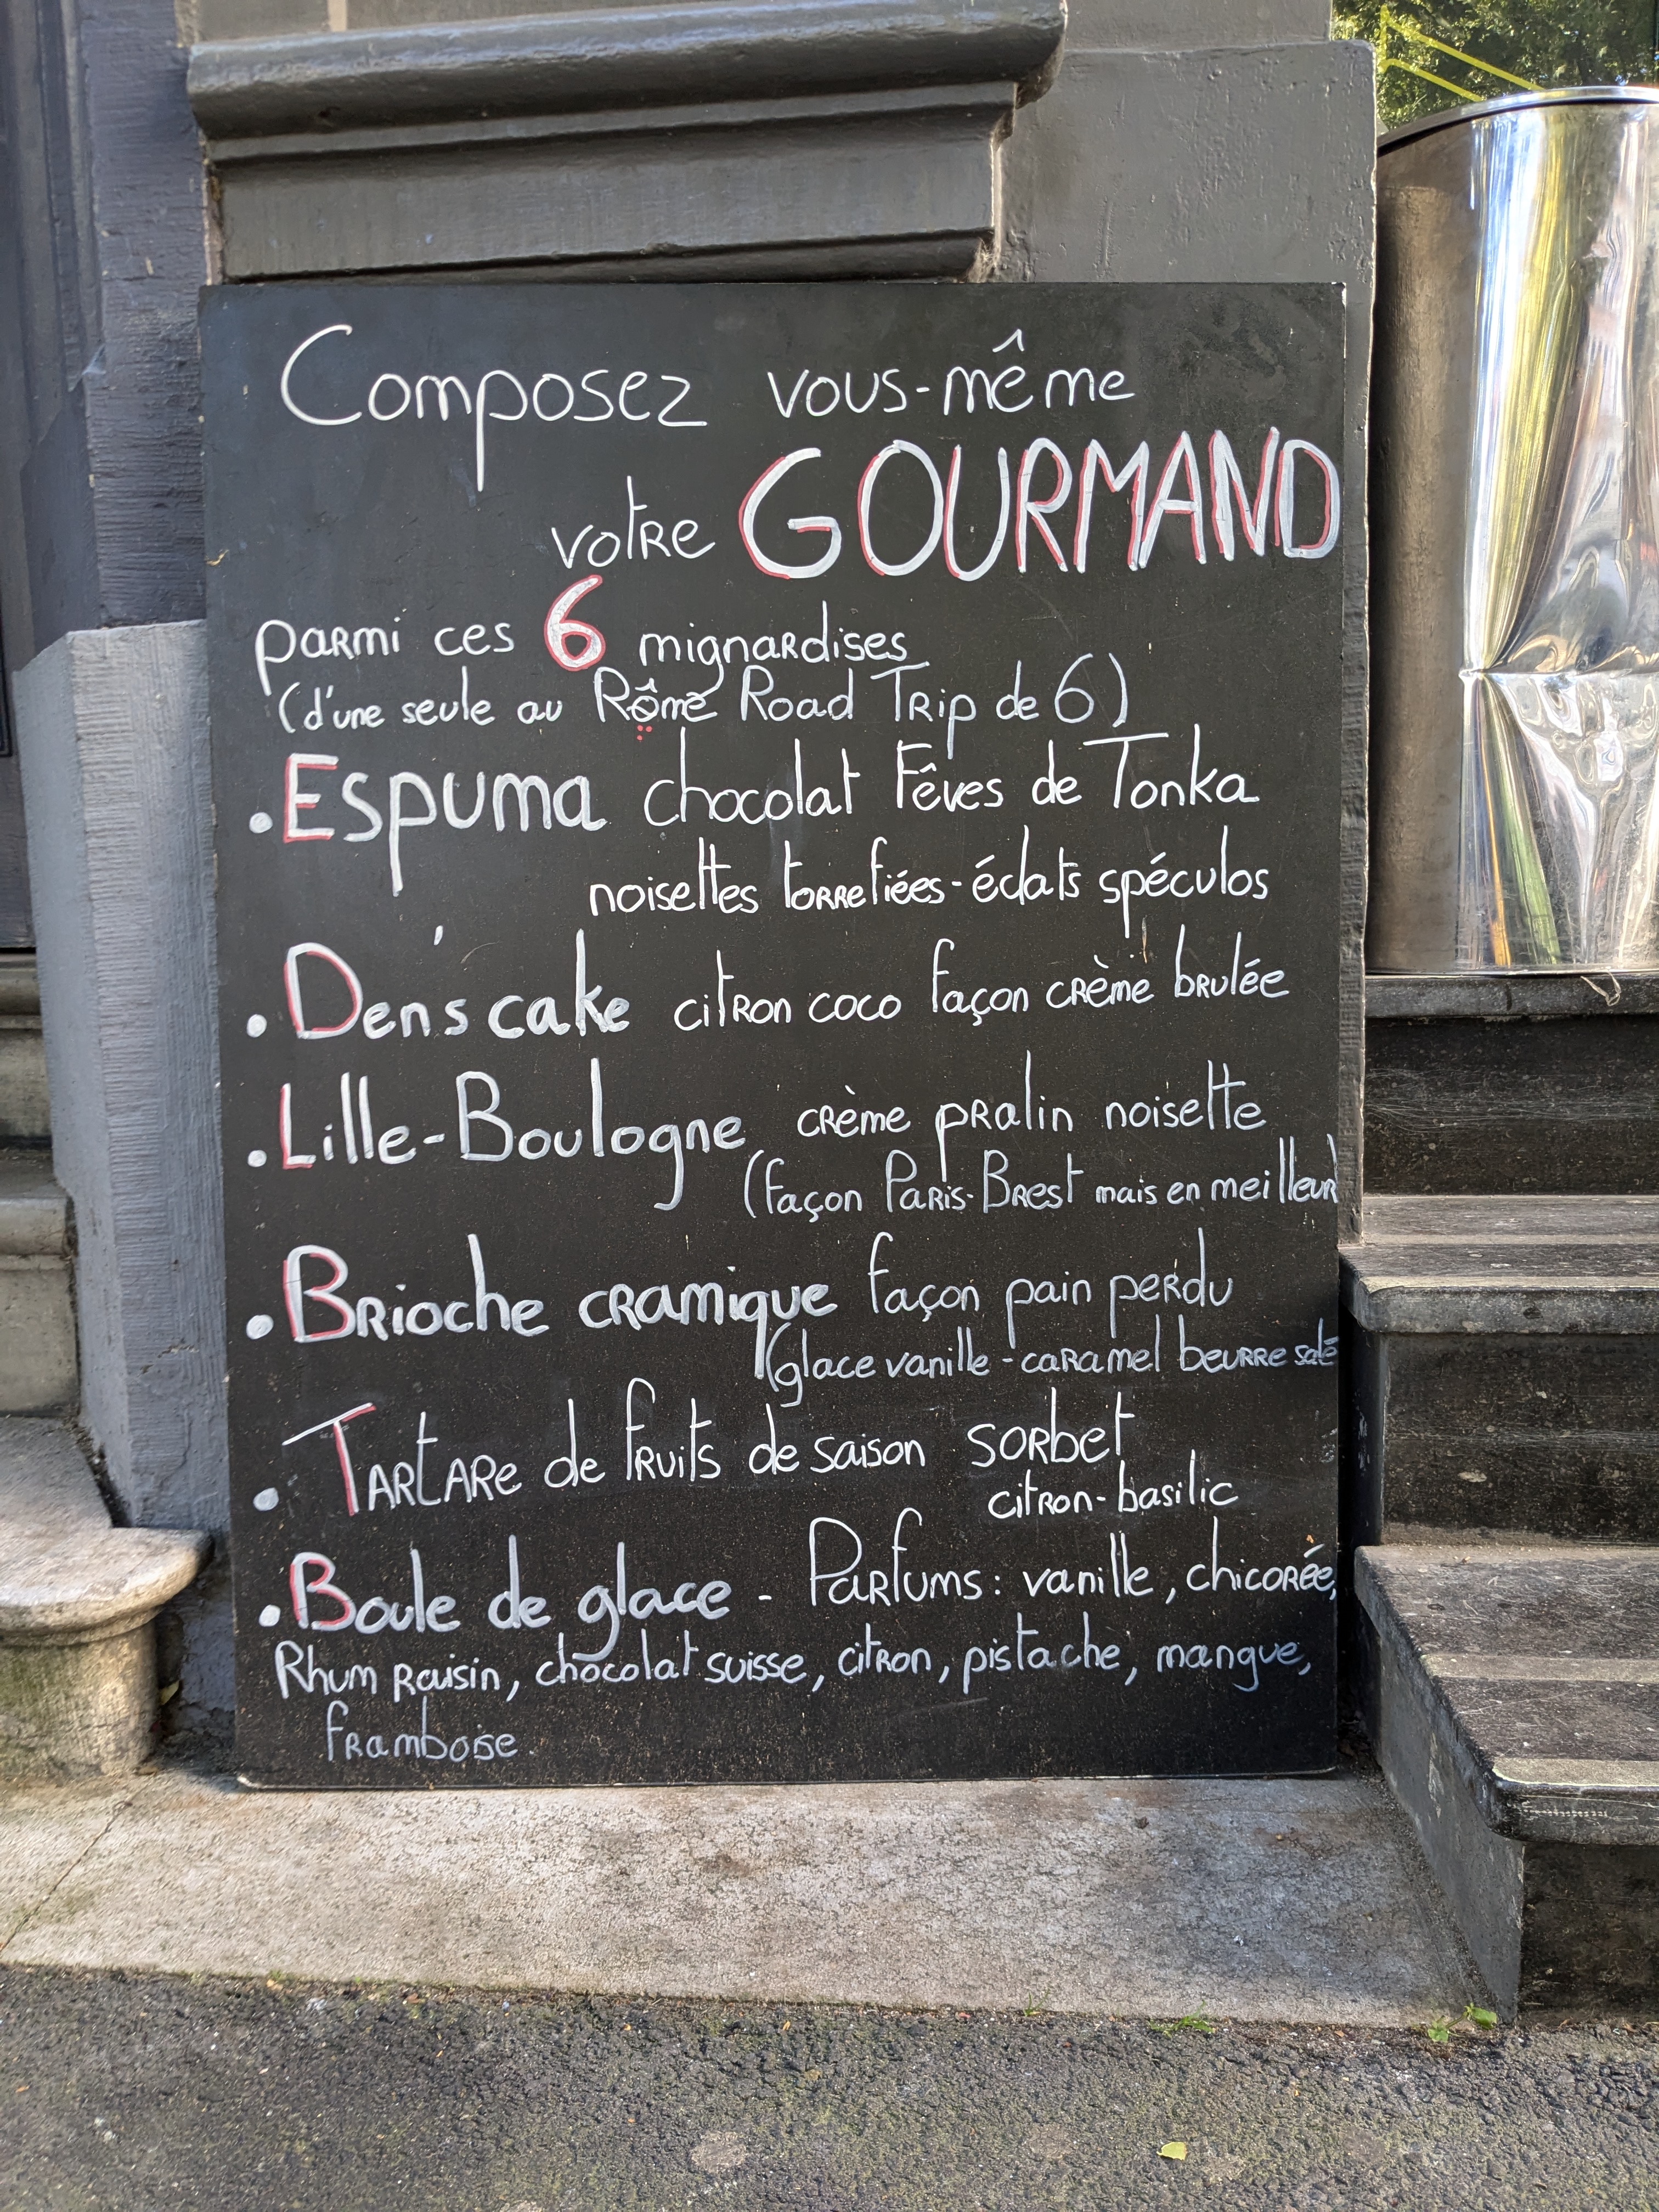 Composez vous-même
votre GOURMAND
parmi ces 6 mignardises
(d'une seule au Rôme Road Trip de 6)
• Espuma chocolat Fêves de Tonka
noisettes torrefiées - éclats spéculos
• Den's cake citron coco façon crème brulée
• Lille-Boulogne crème pralin noisette
(façon Paris-Brest mais en meilleur)
• Brioche cramique façon pain perdu
(glace vanille - caramel beurre salé
• Tartare de fruits de saison sorbet
citron-basilic
• Boule de glace - Parfums : vanille, chicorée,
Rhum Raisin, chocolat suisse, citron, pistache, mangue,
framboise.